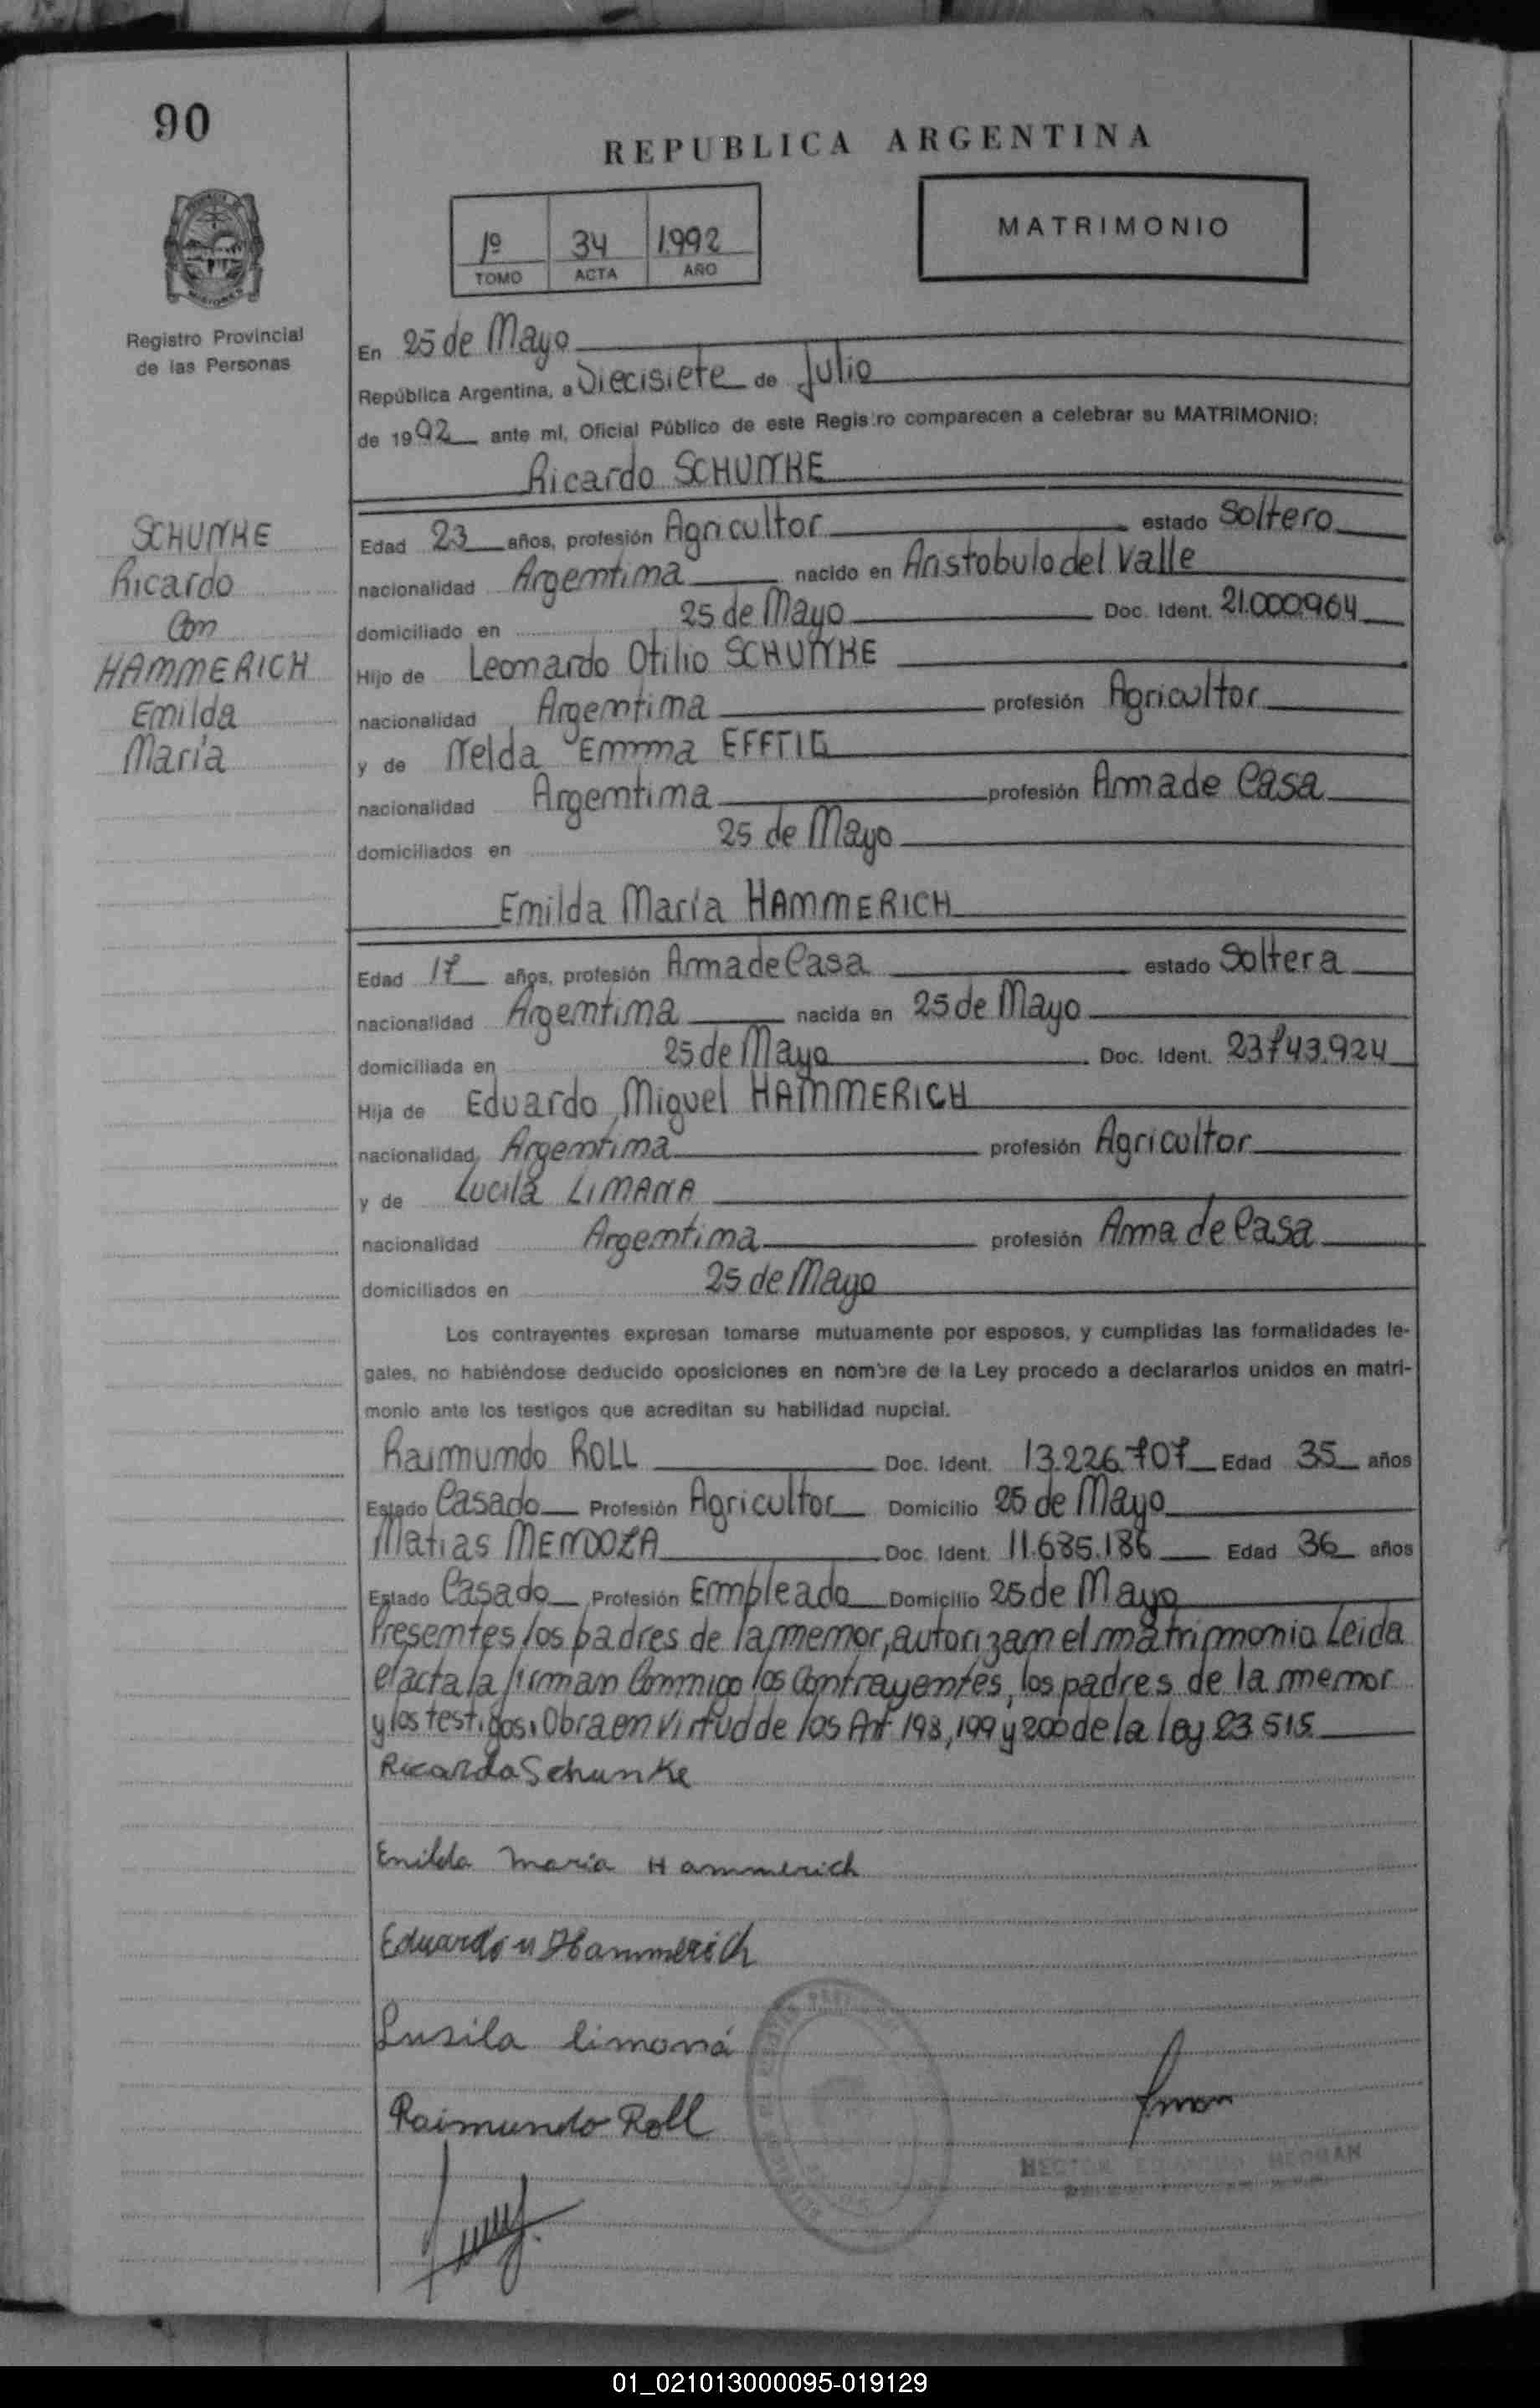 90
REPUBLICA ARGENTINA
1º 34 1.992
TOMO ACTA AÑO
MATRIMONIO
Registro Provincial
de las Personas
En 25 de Mayo
República Argentina, a Diecisiete de Julio
de 1992 ante mí, Oficial Público de este Registro comparecen a celebrar su MATRIMONIO:
Ricardo SCHUNKE
SCHUNKE
Ricardo
Con
HAMMERICH
Emilda
María
Edad 23 años, profesión Agricultor estado Soltero
nacionalidad Argentina nacido en Aristobulo del Valle
domiciliado en 25 de Mayo Doc. Ident. 21.000.964
Hijo de Leonardo Otilio SCHUNKE
nacionalidad Argentina profesión Agricultor
y de Nelda Emma EFFTIG
nacionalidad Argentina profesión Ama de Casa
domiciliados en 25 de Mayo
Emilda María HAMMERICH
Edad 17 años, profesión Ama de Casa estado Soltera
nacionalidad Argentina nacida en 25 de Mayo
domiciliada en 25 de Mayo Doc. Ident. 23.743.924
Hija de Eduardo Miguel HAMMERICH
nacionalidad Argentina profesión Agricultor
y de Lucila LIMANA
nacionalidad Argentina profesión Ama de Casa
domiciliados en 25 de Mayo
Los contrayentes expresan tomarse mutuamente por esposos, y cumplidas las formalidades le-
gales, no habiéndose deducido oposiciones en nombre de la Ley procedo a declararlos unidos en matri-
monio ante los testigos que acreditan su habilidad nupcial.
Raimundo ROLL Doc. Ident. 13.226.707 Edad 35 años
Estado Casado Profesión Agricultor Domicilio 25 de Mayo
Matias MENDOZA Doc. Ident. 11.685.186 Edad 36 años
Estado Casado Profesión Empleado Domicilio 25 de Mayo
Presentes los padres de la menor, autorizan el matrimonio Leida
el acta la firman Conmigo los Contrayentes, los padres de la menor
y los testigos. Obra en Virtud de los Art 198, 199 y 200 de la ley 23.515
Ricardo Schunke
Enilda maria Hammerich
Eduardo M Hammerich
Lusila limaná
Raimundo Roll
HECTOR EDUARDO
01_021013000095-019129